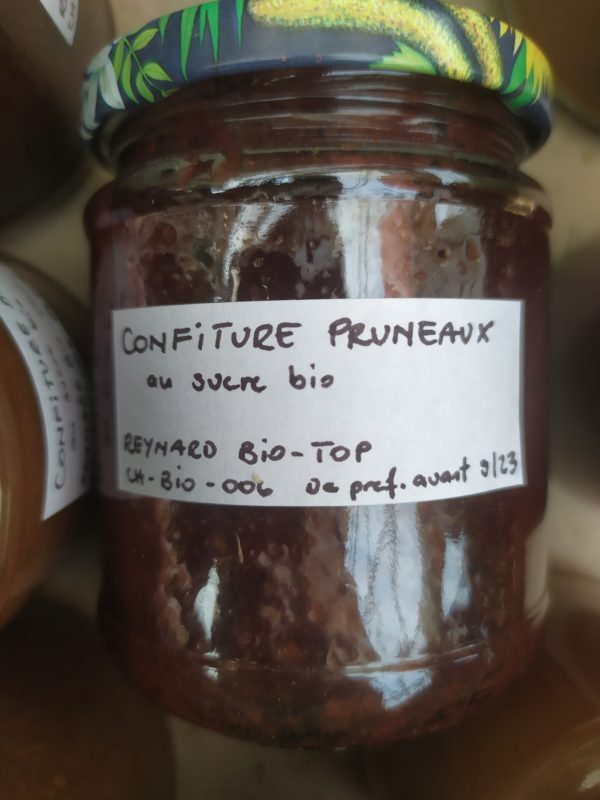 CONFITURE PRUNEAUX
au sucre bio
REYNARD BIO-TOP
CH-Bio-006 De pref. avant 9/23
CONFITURE